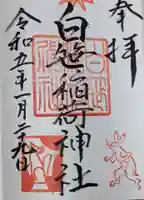 奉拝
白笹稲荷神社
令和五年一月二十九日